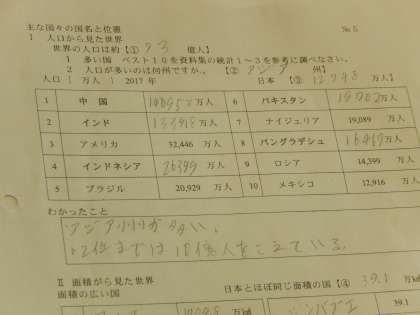 主な国々の国名と位置 No 5
I 人口から見た世界
世界の人口は約【① 73 億人】
1 多い国 ベスト10を資料集の統計1～3を参考に調べなさい。
2 人口が多いのは何州ですか。 【② アジア 州】
人口〔万人〕2017年 日本【③ 万人】
1 中国 万人 6 パキスタン 万人
2 インド 万人 7 ナイジェリア 19,089 万人
3 アメリカ 32,446 万人 8 バングラデシュ 万人
4 インドネシア 26399 万人 9 ロシア 14,399 万人
5 ブラジル 20,929 万人 10 メキシコ 12,916 万人
わかったこと
アジア州が多い。
2位までは10億人をこえている。
II 面積から見た世界
面積の広い国 日本とほぼ同じ面積の国【④ 39.1 万㎢
万㎢ ジンバブエ 39.1